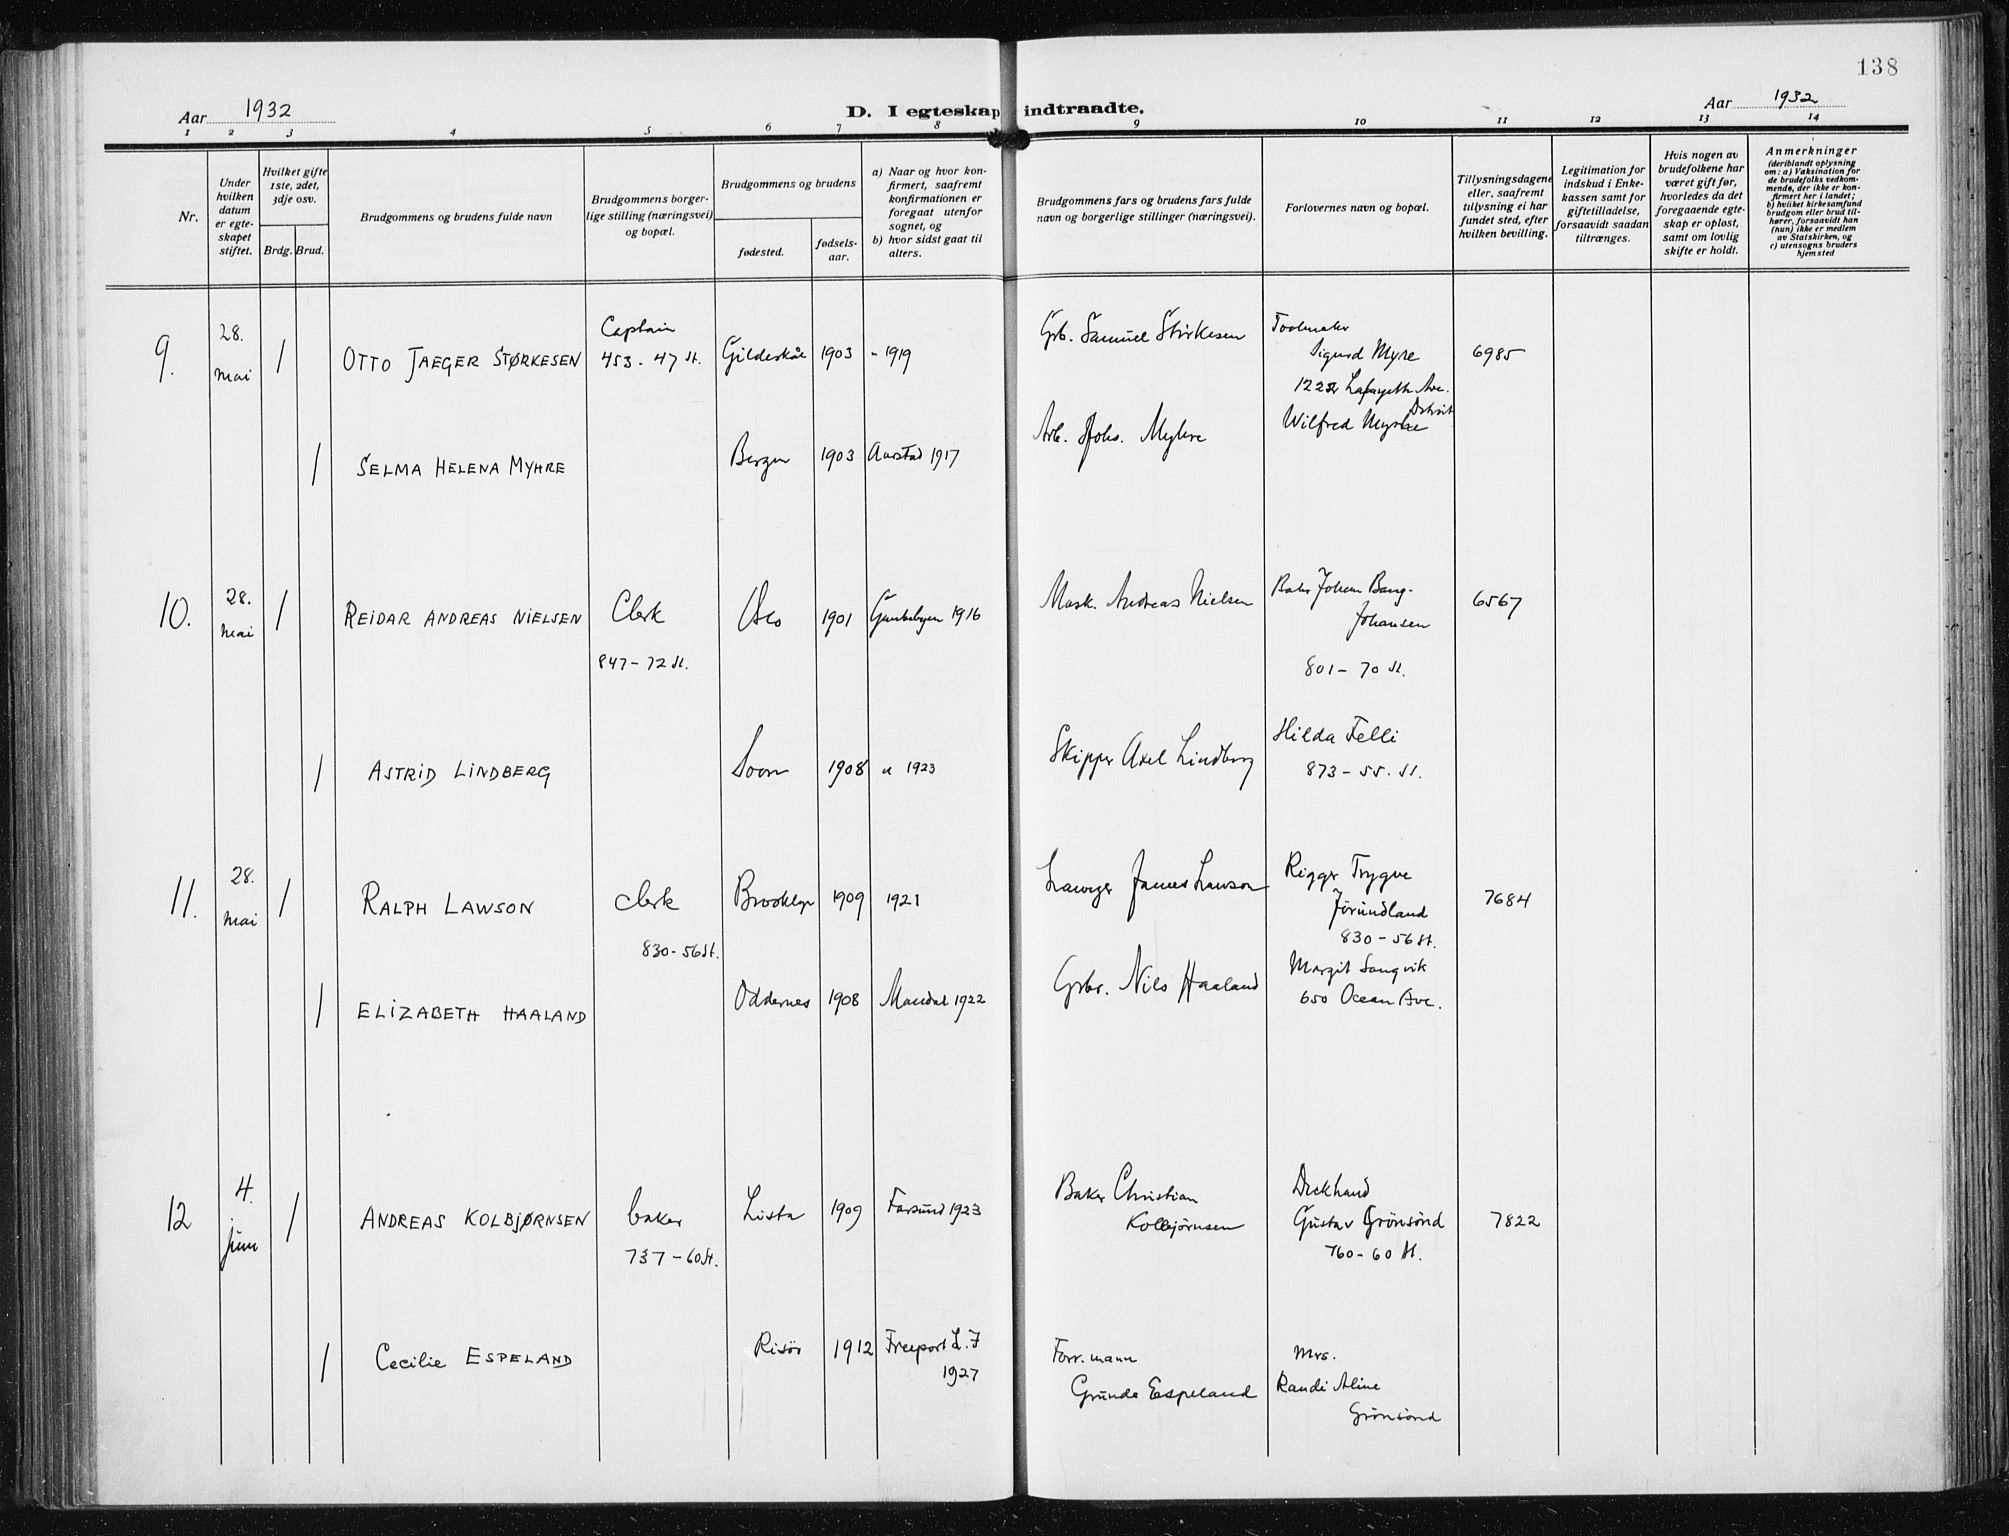 138
Aar 1932
D. I egteskap indtraadte.
Aar 1932
1 2 3 4 5 6 7 8 9 10 11 12 13 14
Nr.
Under
hvilken
datum
er egte-
skapet
stiftet.
Hvilket gifte
1ste, 2det,
3dje osv.
Brdg. Brud.
Brudgommens og brudens fulde navn
Brudgommens borger-
lige stilling (næringsvei)
og bopæl.
Brudgommens og brudens
fødested.
fødsels-
aar.
a) Naar og hvor kon-
firmert, saafremt
konfirmationen er
foregaat utenfor
sognet, og
b) hvor sidst gaat til
alters.
Brudgommens fars og brudens fars fulde
navn og borgerlige stillinger (næringsvei).
Forlovernes navn og bopæl.
Tillysningsdagene
eller, saafremt
tillysning ei har
fundet sted, efter
hvilken bevilling.
Legitimation for
indskud i Enke-
kassen samt for
giftetilladelse,
forsaavidt saadan
tiltrænges.
Hvis nogen av
brudefolkene har
været gift før,
hvorledes da det
foregaaende egte-
skap er opløst,
samt om lovlig
skifte er holdt.
Anmerkninger
(deriblandt oplysning
om: a) Vaksination for
de brudefolks vedkom-
mende, der ikke er kon-
firmert her i landet;
b) hvilket kirkesamfund
brudgom eller brud til-
hører, forsaavidt han
(hun) ikke er medlem
av Statskirken, og
c) utensogns bruders
hjemsted
9.
28.
mai
1
OTTO JAEGER STØRKESEN
Captain
453 - 47 St.
Gildeskål
1903
1919
Grb. Samuel Störkesen
Toolmaker
Sigurd Myre
Lafayette Ave.
Detroit
6985
1
SELMA HELENA MYHRE
Bergen
1903
Aarstad 1917
Arb. Johs. Myhre
Wilfred Myhre
10.
28.
mai
1
REIDAR ANDREAS NIELSEN
Clerk
847 - 72 St.
Oslo
1901
Gamlebyen 1916
Mask. Andreas Nielsen
Baker Johan Bang-
Johansen
801 - 70 St.
6567
1
ASTRID LINDBERG
Soon
1908
" 1923
Skipper Axel Lindberg
Hilda Felli
873 - 55. St.
11.
28.
mai
1
RALPH LAWSON
Clerk
830 - 56 St.
Brooklyn
1909
1921
Lawyer James Lawson
Rigger Trygve
Jörundland
830 - 56 St.
7684
1
ELIZABETH HAALAND
Oddernes
1908
Mandal 1922
Grbr. Nils Haaland
Margit Sangvik
650 Ocean Ave.
12
4.
juni
1
ANDREAS KOLBJØRNSEN
baker
737 - 60 St.
Lista
1909
Farsund 1923
Baker Christian
Kolbjörnsen
Deckhand
Gustav Grönsönd
760 - 60 St.
7822
1
Cecilie ESPELAND
Risör
1912
Freeport L.I
1927
Forr.mann
Gunde Espeland
Mrs.
Randi Aline
Grönsönd